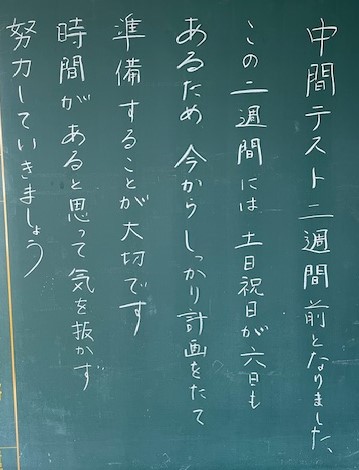 中間テスト二週間前となりました、
この二週間には 土日祝日が六日も
あるため 今から しっかり計画をたて
準備することが大切です
時間が あると思って 気を抜かず
努力していきましょう